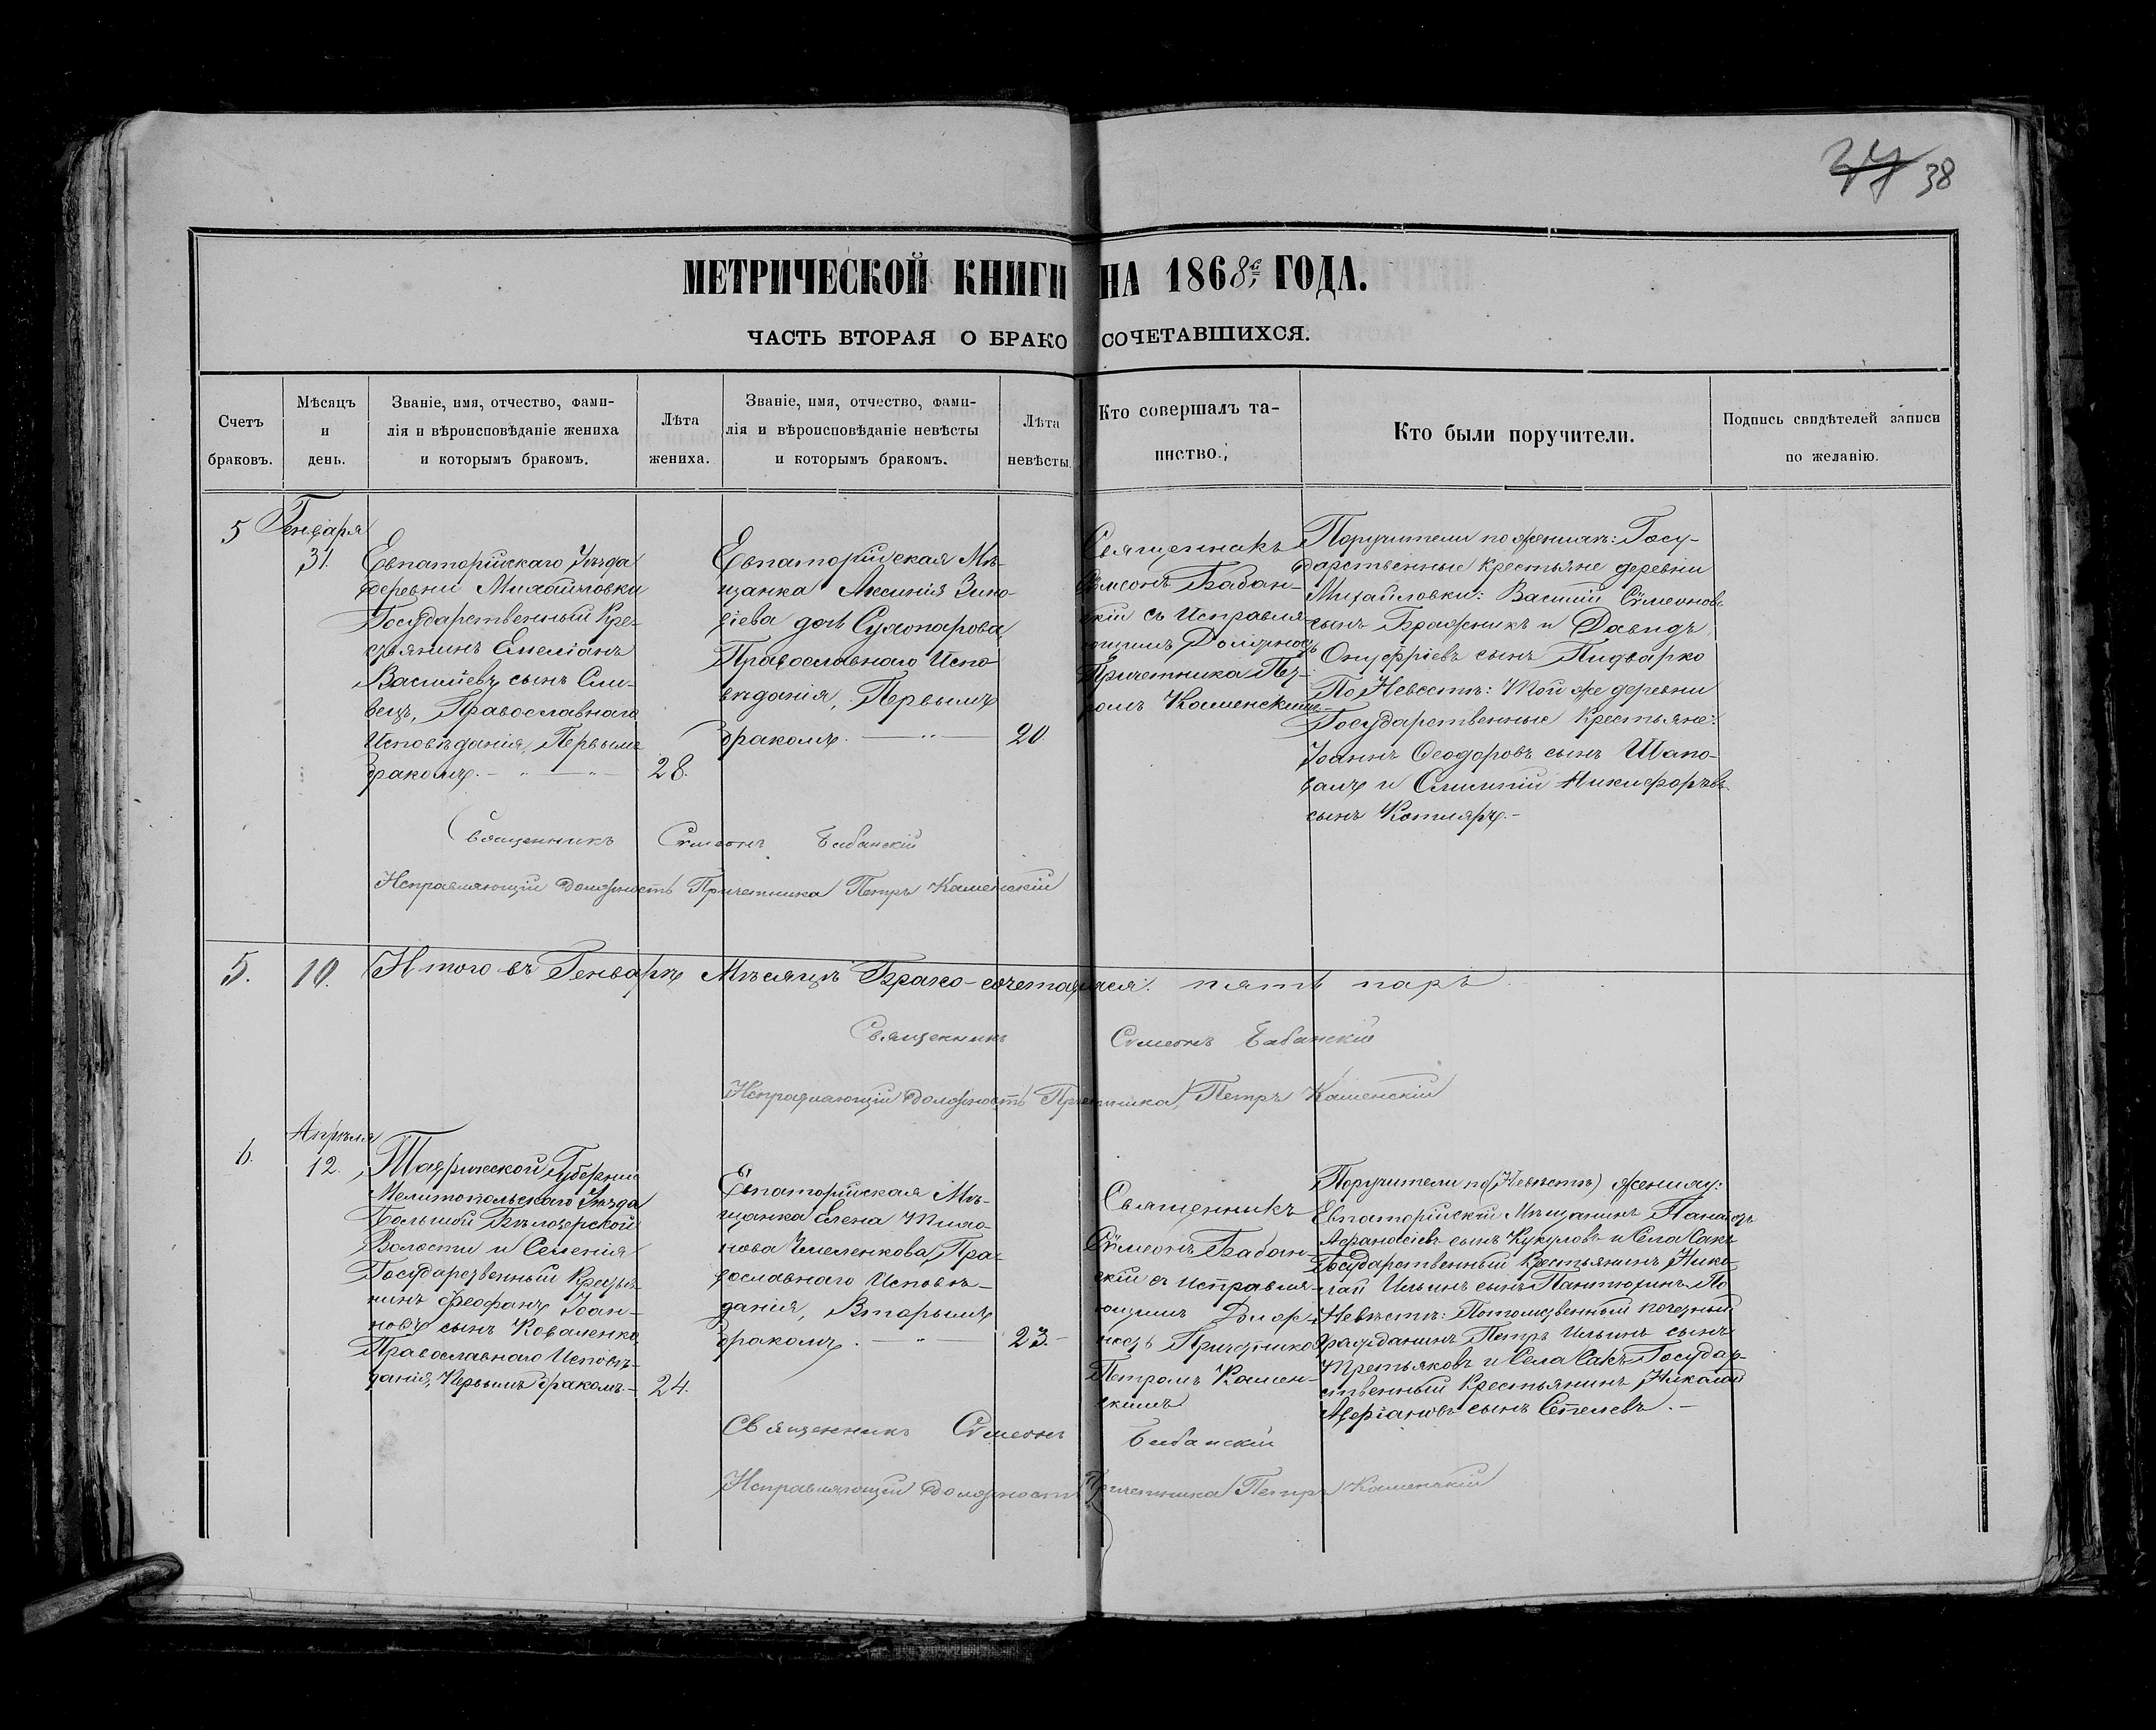 37 38
МЕТРИЧЕСКОЙ КНИГИ НА 1868й ГОДА.
ЧАСТЬ ВТОРАЯ О БРАКОСОЧЕТАВШИХСЯ.
Счетъ
браковъ.
Мѣсяцъ
и
день.
Званіе, имя, отчество, фами-
лія и вѣроисповѣданіе жениха
и которымъ бракомъ.
Лѣта
жениха.
Званіе, имя, отчество, фами-
лія и вѣроисповѣданіе невѣсты
и которымъ бракомъ.
Лѣта
невѣсты.
Кто совершалъ та-
инство.
Кто были поручители.
Подпись свидѣтелей записи
по желанію.
5
Генваря
31.
Евпаторійскаго Уѣзда
деревни Михайловки
Государственный Кре-
стьянинъ Емеліанъ
Василіевъ сынъ Сли-
вецъ, Православнаго
Исповѣданія, Первымъ
бракомъ.
28.
Евпаторійская Мѣ-
щанка Аксинія Зино-
віева дочь Сухопарова,
Православнаго Испо-
вѣданія, Первымъ
бракомъ.
20
Священникъ
Сѵмеонъ Бабан-
скій съ Исправля-
ющимъ Должность
Причетника Пет-
ромъ Каменскимъ
Поручители по женихѣ: Госу-
дарственные крестьяне деревни
Михайловки: Василій Сѵмеоновъ
сынъ Бражникъ и Давидъ
Онуфріевъ сынъ Пидварко
По Невестѣ: Той же деревни
Государственные Крестьяне:
Іоаннъ Ѳеодоровъ сынъ Шапо-
валъ и Никифоровъ
сынъ Котляръ.
Священникъ Сѵмеонъ Бабанскій
Исправляющій должность Причетника Петръ Каменскій
5. 10. Итого въ Генварѣ Мѣсяцѣ Брако-сочеталися. пять паръ
Священникъ Сѵмеонъ Бабанскій
Исправляющій должность Причетника, Петръ Каменскій
6.
Апрѣля
12.
Таврической Губерніи
Мелитопольскаго Уѣзда
Большой Бѣлозерской
Волости и Селенія
Государственный Крестья-
нинъ Феофанъ Іоан-
новъ сынъ Коваленко,
Православнаго Исповѣ-
данія, Первымъ бракомъ.
24.
Евпаторійская Мѣ-
щанка Елена Тихо-
нова Чмеленкова, Пра-
вославнаго Исповѣ-
данія, Вторымъ
бракомъ.
23.
Священникъ
Сѵмеонъ Бабан-
скій съ Исправля-
ющимъ Долж-
ность Причетника
Петромъ Камен-
скимъ
Поручители по (Невѣстѣ) жениху:
Евпаторійскій Мѣщанинъ Панаіодъ
Афанасіевъ сынъ Кукуловъ и Села Сакъ
Государственный Крестьянинъ Нико-
лай Ильинъ сынъ Пантюхинъ. По
Невѣстѣ: Потомственный почетный
Гражданинъ Петръ Ильинъ сынъ
Третьяковъ и Села Сакъ Государ-
ственный Крестьянинъ Николай
сынъ
Священникъ Сѵмеонъ Бабанскій
Исправляющій должность Причетника Петръ Каменскій